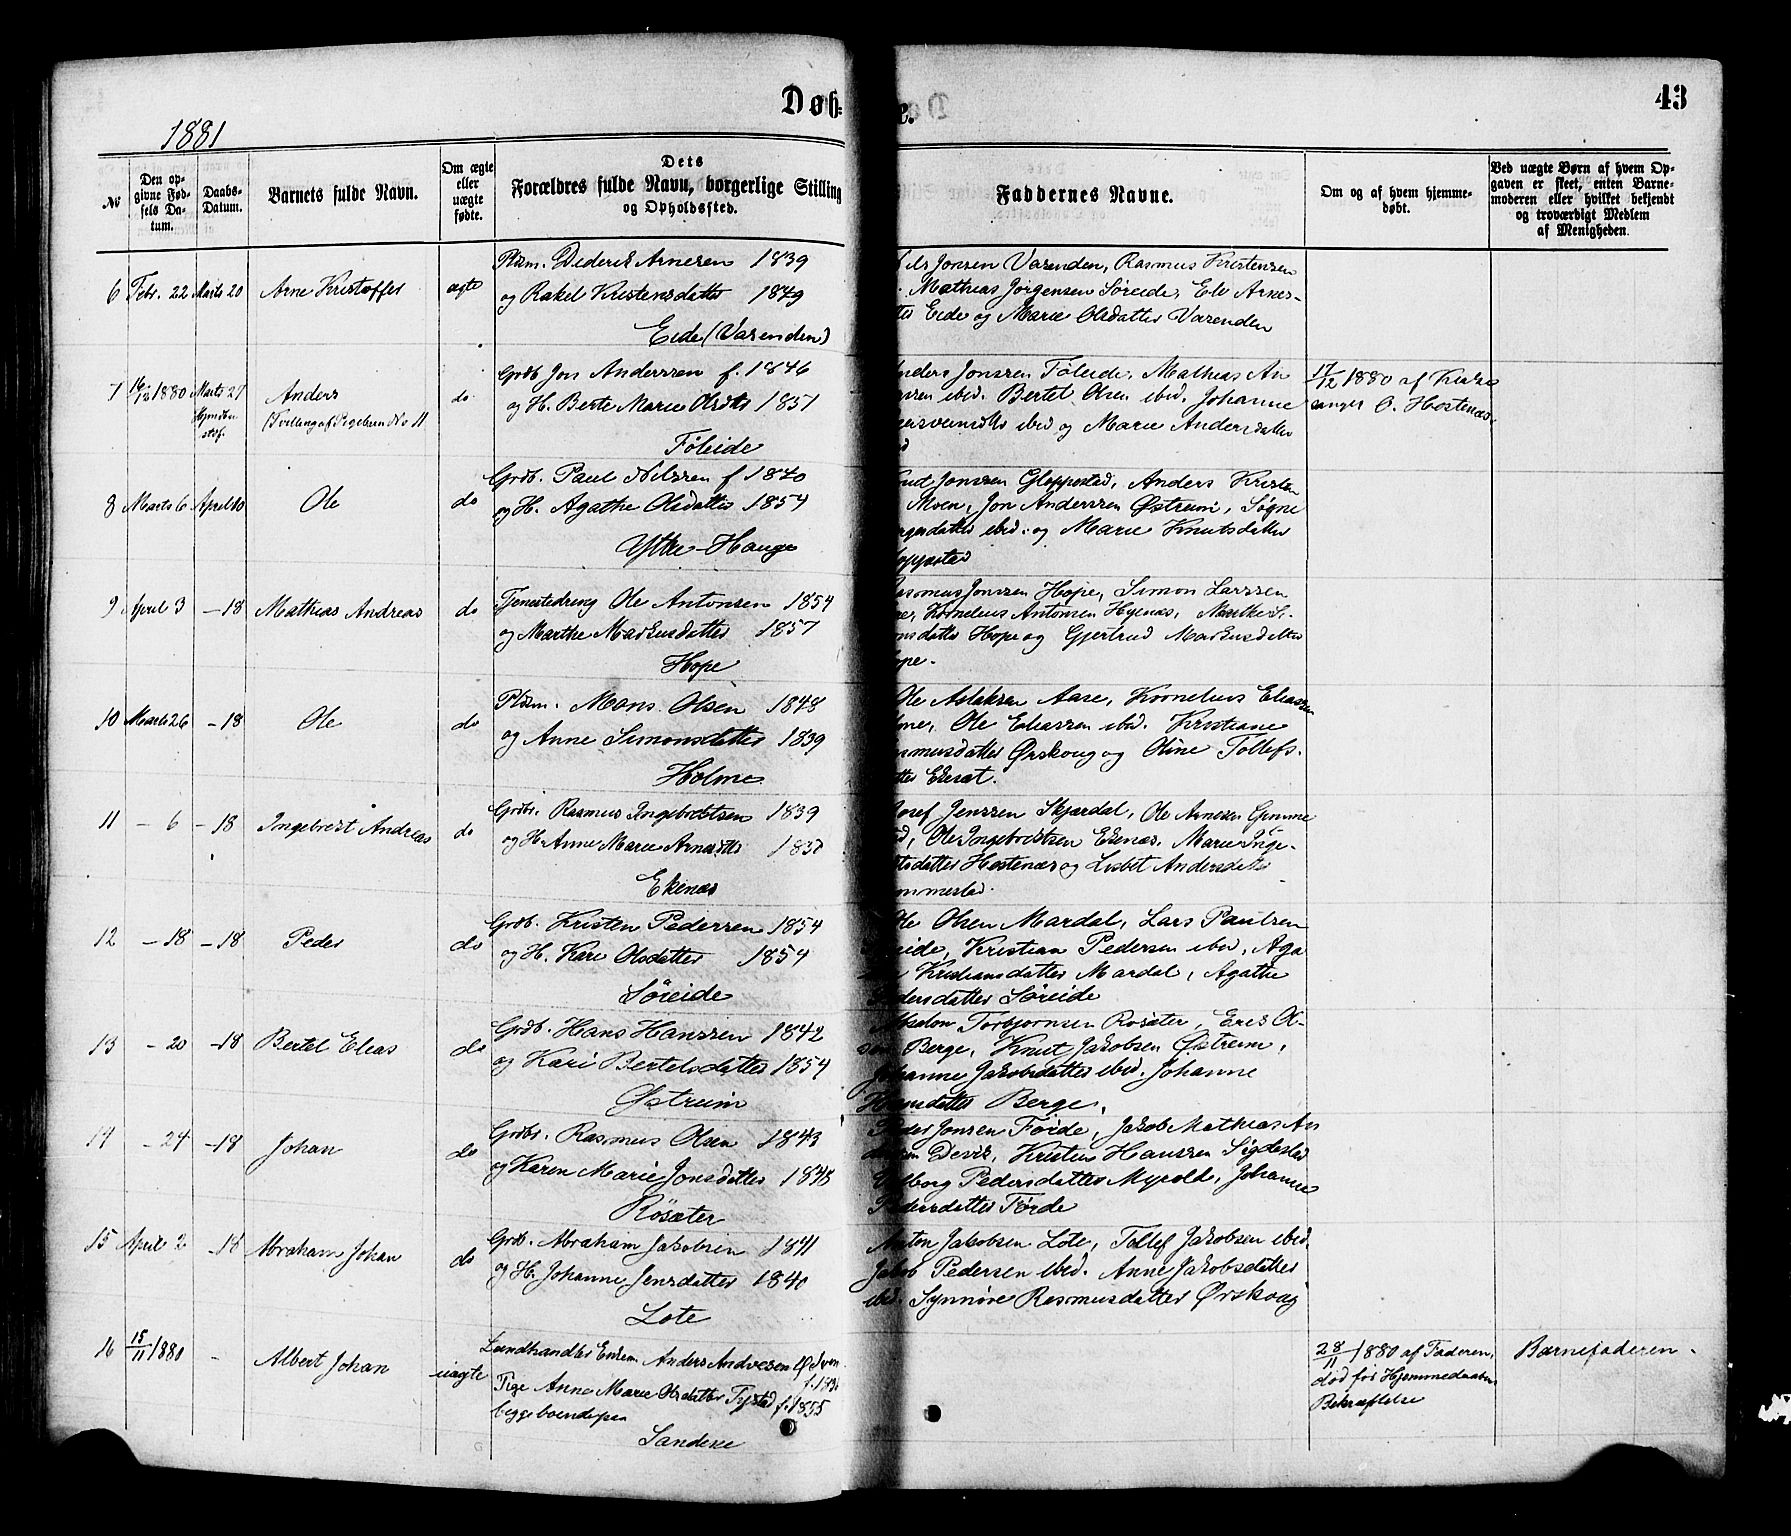 Døb-
e.
43
1881
No
Den op-
givne Fød-
sels Da-
tum.
Daabs-
Datum.
Barnets fulde Navn.
Om ægte
eller
uægte
fødte.
Dets
Forældres fulde Navn, borgerlige Stilling
og Opholdsted.
Faddernes Navne.
Om og af hvem hjemme-
døbt.
Ved uægte Børn af hvem Op-
gaven er skeet, enten Barne-
moderen eller hvilket bekjendt
og troværdigt Medlem
af Menigheden.
6 Febr. 22 Marts 20 Arne Kristoffer ægte
Plsm. Diderik Arnesen 1839
og Rakel Kristensdatter 1849
Eide (Varenden)
Jonsen Varenden, Rasmus Kristensen
Mathias Jörgensen Söreide, Eli Arnes-
Eide og Marie Olsdatter Varenden
7 16/12 1880 Marts 27 Anders do
(Tvilling af Pigebarn No 11
Grdb Jon Anderssen f. 1846
og H. Berte Marie Olsdtr 1851
Föleide
Jonssen Föleide, Mathias An
ibid. Bertel Olsen ibid. Johanne
ibid og Marie Andersdatter
17/12 1880 af Kirke
sanger O. Hestenæs.
8 Marts 6 April 10 Ole do
Grdb. Paul Nilssen f 1840
og H. Agathe Olsdatter 1854
Ytre-Hauge
Jonssen Gloppestad, Anders Kristen
Moen, Jon Anderssen Østreim, Søgne
ibid. og Marie Knutsdatter
9 April 3 -18 Mathias Andreas do
Tjenestedreng Ole Antonsen 1854
og Marthe Markusdatter 1857
Hope
Rasmus Jonssen Hope, Simon Larssen
Kornelius Antonsen Hyenæs, Marthe S.
Hope og Gjertrud Markusdatter
10 Marts 26 -18 Ole do
Plsm. Mons Olsen 1848
og Anne Simonsdatter 1839
Holme
Ole Aslaksen Aase, Kornelius Eliassen
Ole Eliassen ibid. Kristiane
Ørskoug og Oline Tollefs-
11 - 6 - 18 Ingebrikt Andreas do
Grdbr. Rasmus Ingebriktsen 1839
og H. Anne Marie Arnesdtr
Ekenæs
Josef Jenssen Skjærdal, Ole Arnesen Gimme
Ole Ingebriktsen Ekenæs. Marie Inge-
Hestenæs og Lisbet Andersdatter
12 - 18 - 18 Peder do
Grdb. Kristen Pederssen 1854
og H. Kari Olsdatter 1854
Söreide
Ole Olsen Mardal, Lars Paulsen
Kristian Pedersen ibid, Aga
Kristiansdatter Mardal, Agathe
Pedersdatter Söreide
13 - 20 -18 Bertel Elias do
Grdb. Hans Hanssen 1842
og Kari Bertelsdatter 1854
Østreim
Absalon Torbjørnsen Rosæter, Erik Ol-
sen Berge, Knut Jakobsen Østreim,
Johanne Jakobsdatter ibid. Johanne
Hansdatter Berge.
14 - 24 -18 Johan do
Grdbr. Rasmus Olsen 1843
og Karen Marie Jonsdatter 1848
Rösæter
Peder Jonsen Förde, Jakob Mathias An
Kristen Hanssen Sigdestad
Pedersdatter Myrold, Johanne
Pedersdatter Förde
15 April 2 -18 Abraham Johan do
Grdb. Abraham Jakobsen 1841
og H. Johanne Jensdatter 1840
Lote
Anton Jakobsen Lote, Tollef Jakobsen ibid.
Jakob Pedersen ibid. Anne Jakobsdatter
ibid. Synnöve Rasmusdatter Ørskoug
16 15/11 1880 - Albert Johan uægte
Landhandler Enkem. Anders Andresen
Pige Anne Marie Olsdatter Tystad f. 1855
begge boende paa
Sandene
28/11 1880 af Faderen,
död för Hjemmedaabens
Bekræftelse
Barnefaderen -